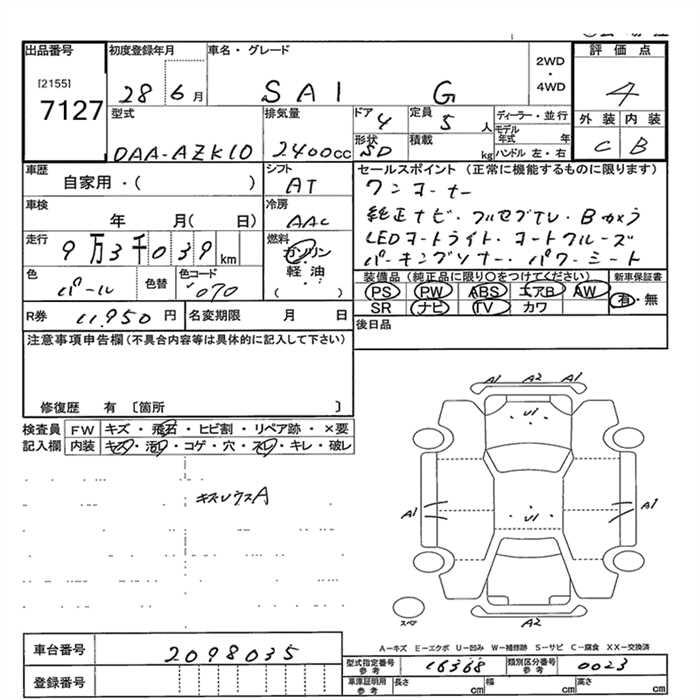 出品番号
[2155]
7127
初度登録年月
28 6月
車名・グレード
SAI G
2WD
・
4WD
評価点
4
外装 内装
C B
型式
DAA-AZK10
排気量
2400cc
ドア 4
形状 SD
定員 5 人
積載 kg
ディーラー・並行
モデル年式 年
ハンドル 左・右
車歴
自家用・( )
シフト
AT
車検
年 月( 日)
冷房
AAC
走行
9万3千039 km
燃料
ガソリン
軽油
( )
色
パール
色替
色コード
070
セールスポイント (正常に機能するものに限ります)
ワンオーナー
純正ナビ・フルセグTV・Bカメラ
LEDオートライト・オートクルーズ
パーキングソナー・パワーシート
装備品(純正品に限り○をつけてください)
PS PW ABS エアB AW
SR ナビ TV カワ
新車保証書
有・無
後日品
R券 11,950 円
名変期限 月 日
注意事項申告欄(不具合内容等は具体的に記入して下さい)
修復歴 有 〔箇所 〕
検査員 FW キズ・飛石・ヒビ割・リペア跡・×要
記入欄 内装 キズ・汚レ・コゲ・穴・スレ・キレ・破レ
キズUウスA
A1 A2 A1
U1
A1 A1
U1
スペア
A2
A-キズ E-エクボ U-凹み W-補修跡 S-サビ C-腐食 XX-交換済
車台番号 2098035
登録番号
型式指定番号 参考 16368
類別区分番号 参考 0023
車庫証明用 参考 長さ cm 幅 cm 高さ cm